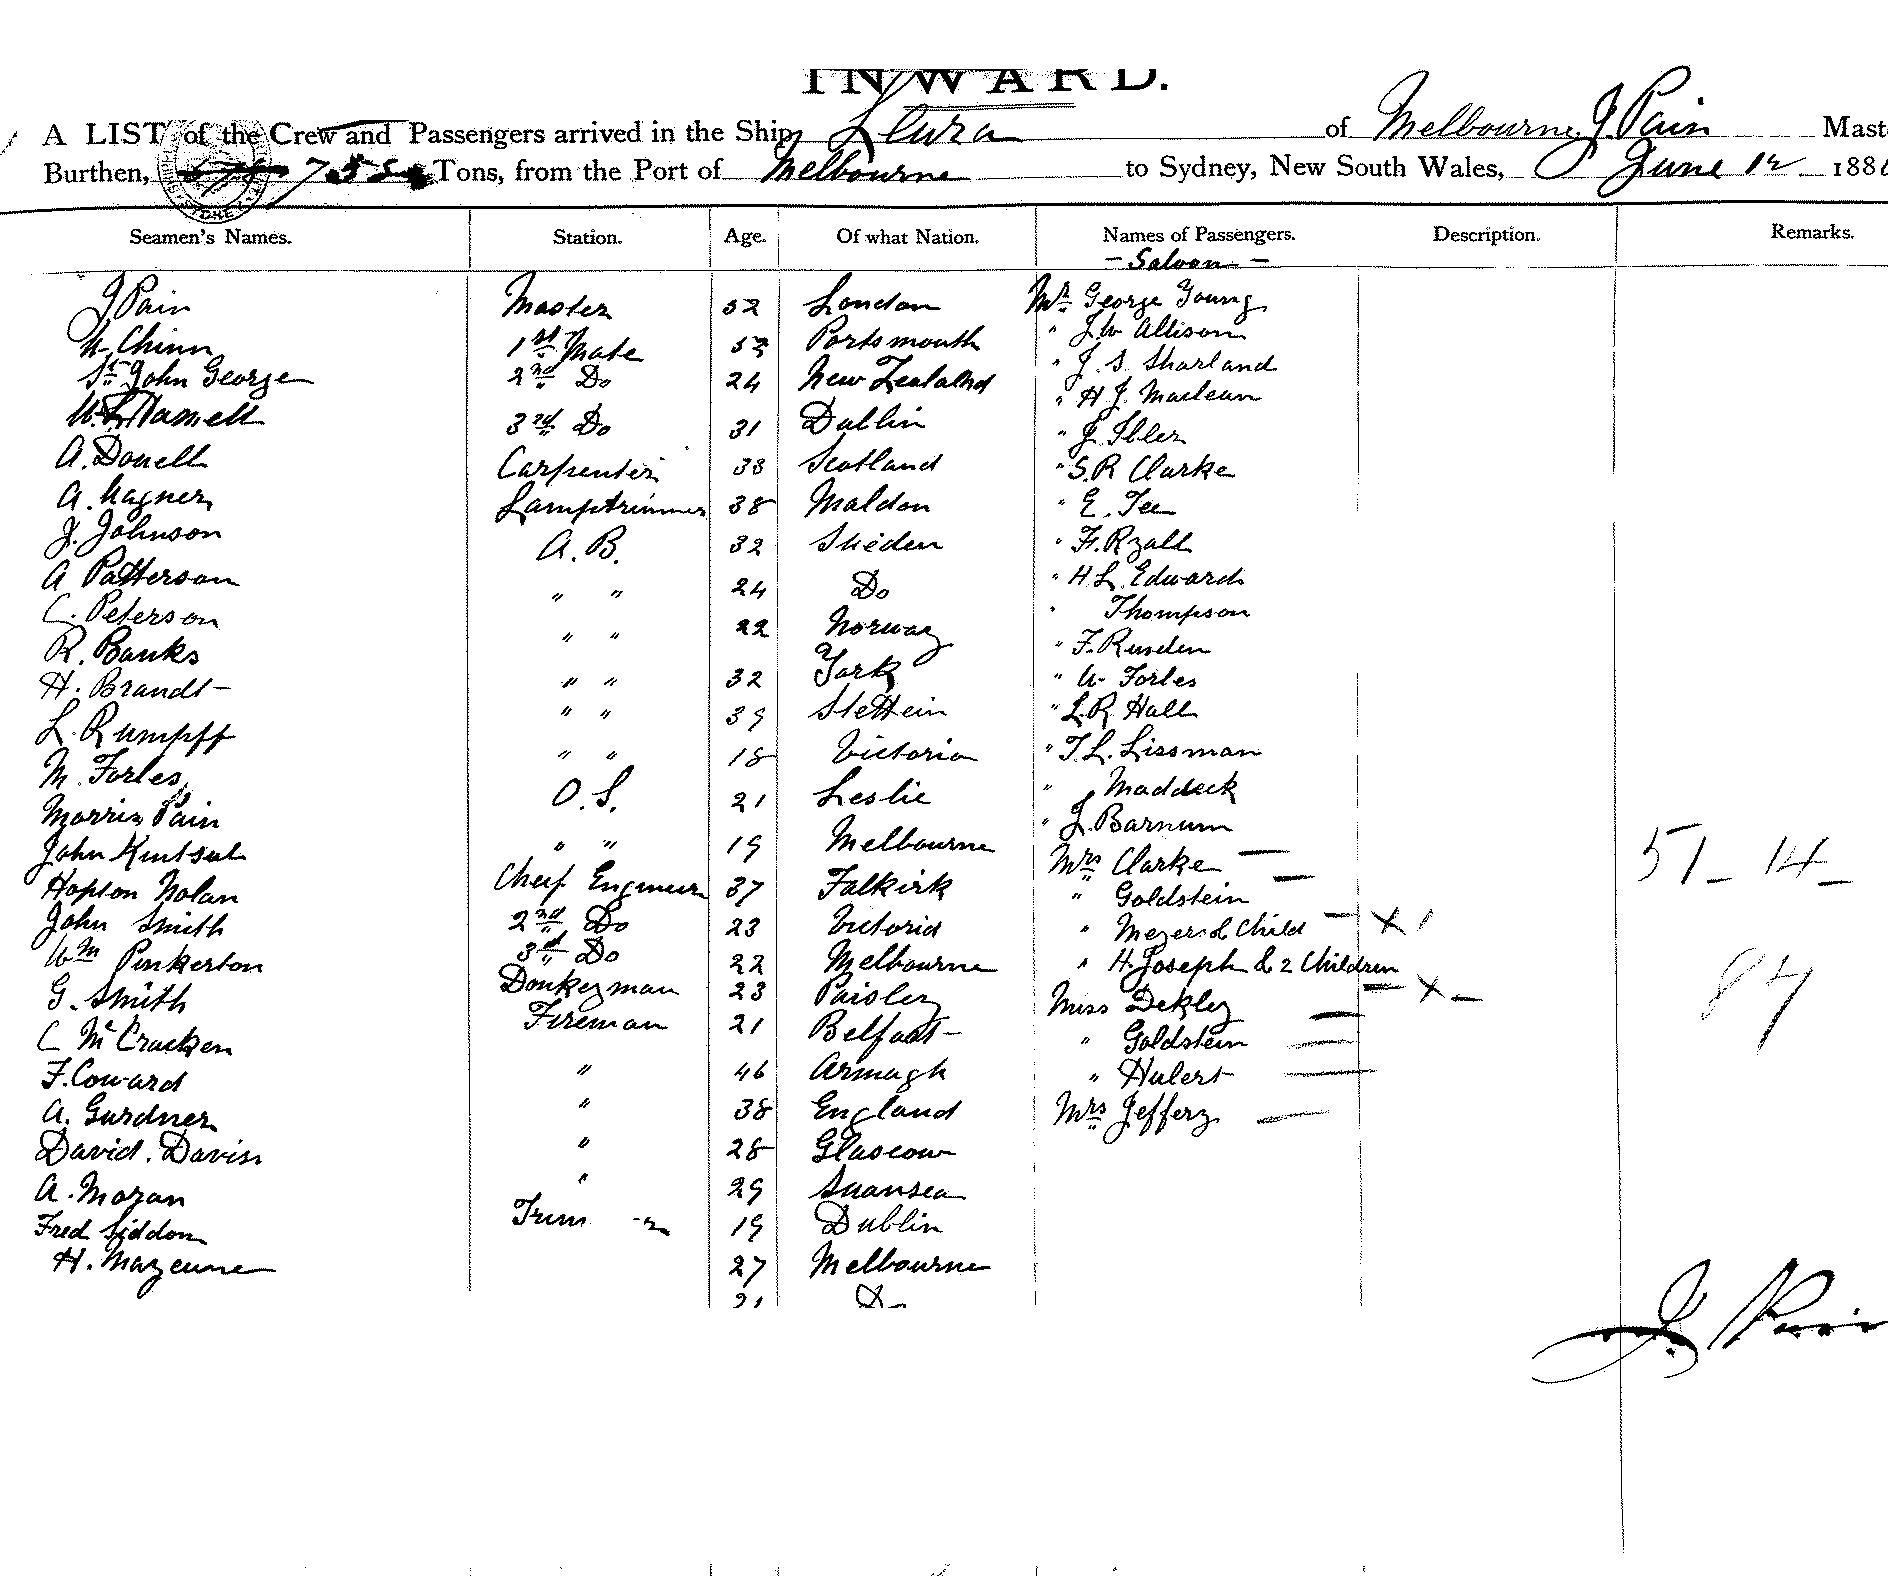 INWARD.
A LIST of the Crew and Passengers arrived in the Ship, of Melbourne, J Pain Mast
Burthen, Tons, from the Port of Melbourne to Sydney, New South Wales, June 12 188
Seamen's Names. Station. Age. Of what Nation. Names of Passengers. Description. Remarks.
- Saloon -
J Pain Master 52 London Mr. George Young
W. Chinn 1st Mate 52 Portsmouth " J.W Allison
St. John George 2nd Do 24 New Zealand " J. S. Sharland
Hamell 3rd Do 31 Dublin " H J. Maclean
A. Donell Carpenter 33 Scotland " J.
A. Wagner Lamptrimmer 38 Maldon " S.R Clarke
J. Johnson A. B. 32 Sweden " E. Tee
A Patterson " " 24 Do " F. Ryall
C. Peterson " " 22 Norway " H L. Edwards
R. Banks " " 32 York " Thompson
H. Brandt " " 39 Stettein " F. Rusden
L. Rumpff " " 18 Victoria " W. Forbes
M. Forbes O. S. 21 Leslie " L.R. Hall
Morris Pain " " 19 Melbourne " T.L. Lissman
John Kintsal Cheif Engineer 37 Falkirk " Maddeck
Hopton Nolan 2nd Do 23 Victoria " J. Barnum
John Smith 3rd Do 22 Melbourne Mrs Clarke
Wm Pinkerton Donkeyman 23 Paisley " Goldstein
G. Smith Fireman 21 Belfast " Meyer & Child X 1
C McCracken " 46 Armagh " H. Joseph & 2 Children X
F. Coward " 38 England Miss Dekley
A. Gardner " 28 Glascow " Goldstein
David. Davis " 29 Swansea " Hulert
A. Moran Trimmer 19 Dublin Mrs Jeffery
Fred Siddon 27 Melbourne
H. Mazeume 21 Do
51 - 14 -
87
J. Pain